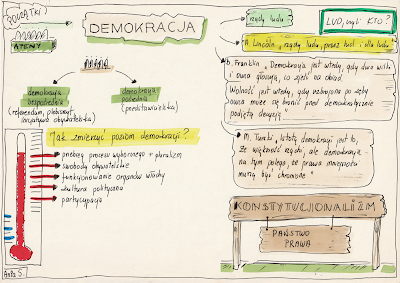 POCZĄTKI
ATENY
DEMOKRACJA
demokracja
bezpośrednia
(referendum, plebiscyt,
inicjatywa obywatelska)
demokracja
pośrednia
(przedstawicielska)
Jak zmierzyć poziom demokracji?
przebieg procesu wyborczego + pluralizm
swobody obywatelskie
funkcjonowanie organów władzy
kultura polityczna
partycypacja
Ania S.
rządy ludu
LUD, czyli KTO?
A. Lincoln „rządy ludu, przez lud i dla ludu"
b. Franklin „Demokracja jest wtedy, gdy dwa wilki
i owca głosują, co zjeść na obiad.
Wolność jest wtedy, gdy uzbrojona po zęby
owca może się bronić przed demokratycznie
podjętą decyzją."
M. Turski „Istotą demokracji jest to,
że większość rządzi, ale demokracja
na tym polega, że prawa mniejszości
muszą być chronione"
KONSTYTUCJONALIZM
PAŃSTWO
PRAWA